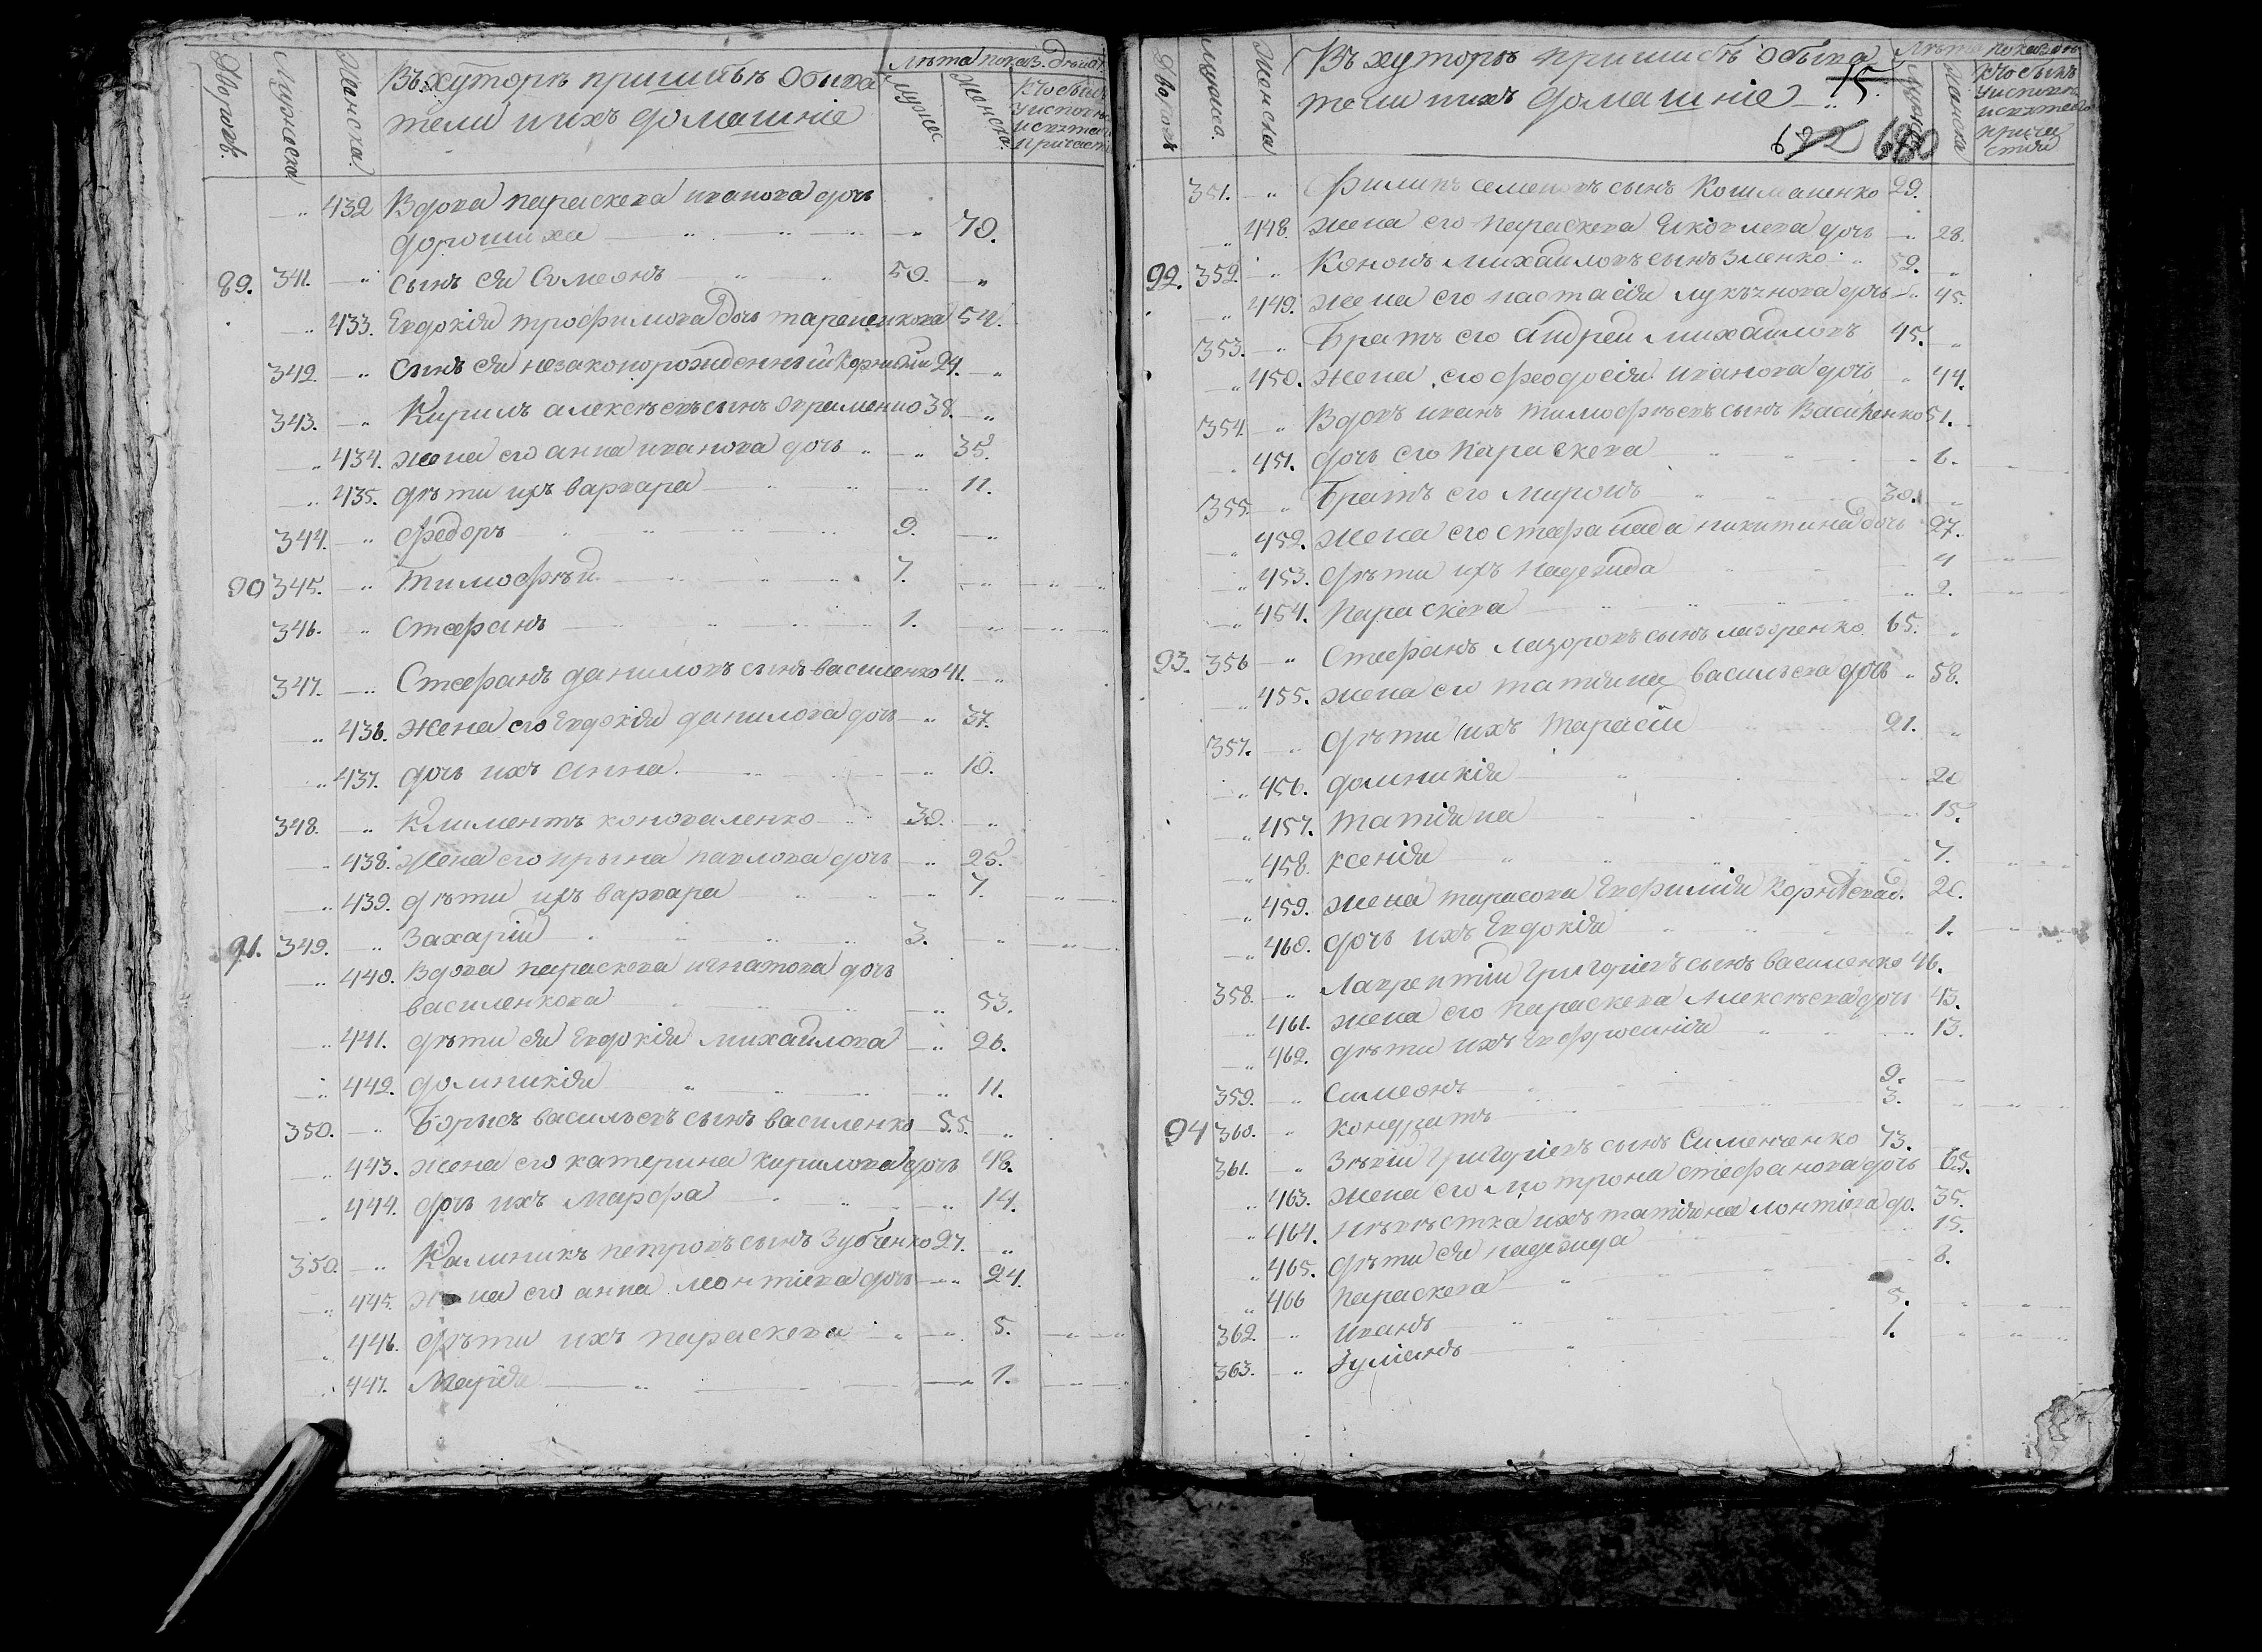 Дворовъ. Мужеска Женска.
Въ хуторѣ пришибѣ Обыва
тели и ихъ домашніе
Лѣта показ.
Мужес. Женска.
Кто былъ
у исповѣ
и с. ктаго
причаст
432 Вдова параскева иванова дочь
дорошиха 70.
89. 341. сынъ ея Симеонъ 50.
433. Евдокія трофимова дочь 54.
342. Сынъ ея незаконорожденный Корнилій 24.
343. Кирилъ алексѣевъ сынъ Охрименко 38.
434. жена его анна иванова дочь 35.
435. дѣти ихъ варвара 11.
344. Федоръ 9.
90 345. Тимофѣй 7.
346. Стефанъ 1.
347. Стефанъ даниловъ сынъ василенко 41.
436. Жена его Евдокія данилова дочь 37.
437. дочь ихъ анна. 10.
348. Климентъ коноваленко 30.
438. Жена его ирына павлова дочь 25.
439. дѣти ихъ варвара 7.
91. 349. Захарій 3.
440. Вдова параскева игнатова дочь
василенкова 53.
441. дѣти ея Евдокія михайлова 26.
442. домникія 11.
350. Борисъ васильевъ сынъ василенко 55.
443. жена его катерина кирилова дочь 48.
444. дочь ихъ марфа 14.
350. Калиникъ петровъ сынъ Зубченко 27.
445. жена его анна леонтіева дочь 24.
446. дѣти ихъ параскева 5.
447. Марія 1.
Дворовъ Мужеск. Женска
Въ хуторѣ пришибѣ обыва
тели и ихъ домашніе
15.
692 680
Лѣта показ.
Женска
Кто былъ
у исповѣ
причa
стія
351. Филипъ семеновъ сынъ Кошманенко 29.
448. жена его параскева Яковлева дочь 28.
92. 352. Кононъ михайловъ сынъ Зленко 52.
449. жена его настасія лукъянова дочь 45.
353. Братъ его Андрей михайловъ 45.
450. жена его феодосія иванова дочь 44.
354. Вдовъ иванъ тимофѣевъ сынъ Василенко 51.
451. дочь его Параскева 6.
355. Братъ его миронъ 30.
452. жена его стефанида никитина дочь 27.
453. дѣти ихъ Надежда 4
454. Параскева 2.
93. 356 Стефанъ лазоровъ сынъ лазоренко 65.
455. жена его татіяна васильева дочь 58.
357. дѣти ихъ Тарасій 21.
456. домникія
457. татіяна 15.
458. ксенія 7.
459. жена тарасова Евфимія Корнѣева д. 20.
460. дочь ихъ Евдокія 1.
358. Лаврентій григоріевъ сынъ василенко 46.
461. жена его параскева Алексѣева дочь 43.
462. дѣти ихъ Евфросинія 13.
359. Симеонъ 9.
94 360. кондратъ 3.
361. григоріевъ сынъ Сименченко 73.
463. жена его мотрона стефанова дочь 65.
464. невѣстка ихъ татіяна леонтіева до. 35.
465. дѣти ея надежда 15.
466 параскева 8.
362. иванъ 5.
363. Іуліанъ 1.